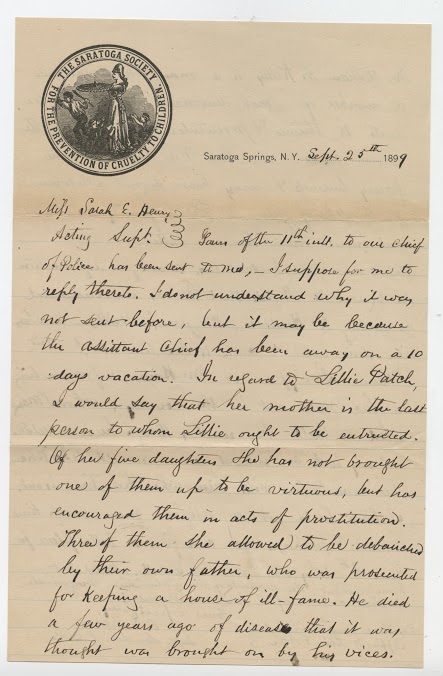 THE SARATOGA SOCIETY
FOR THE PREVENTION OF CRUELTY TO CHILDREN.
Saratoga Springs, N.Y. Sept. 25th 1899
Miss Sarah E. Henry
Acting Supt. Yours of the 11th inst. to our Chief
of Police has been sent to me, – I suppose for me to
reply thereto. I do not understand why it was
not sent before, but it may be because
the assistant Chief has been away on a 10
days vacation. In regard to Lillie Patch,
I would say that her mother is the last
person to whom Lillie ought to be entrusted.
Of her five daughters she has not brought
one of them up to be virtuous, but has
encouraged them in acts of prostitution.
Three of them she allowed to be debauched
by their own father, who was prosecuted
for keeping a house of ill-fame. He died
a few years ago of disease that it was
thought was brought on by his vices.